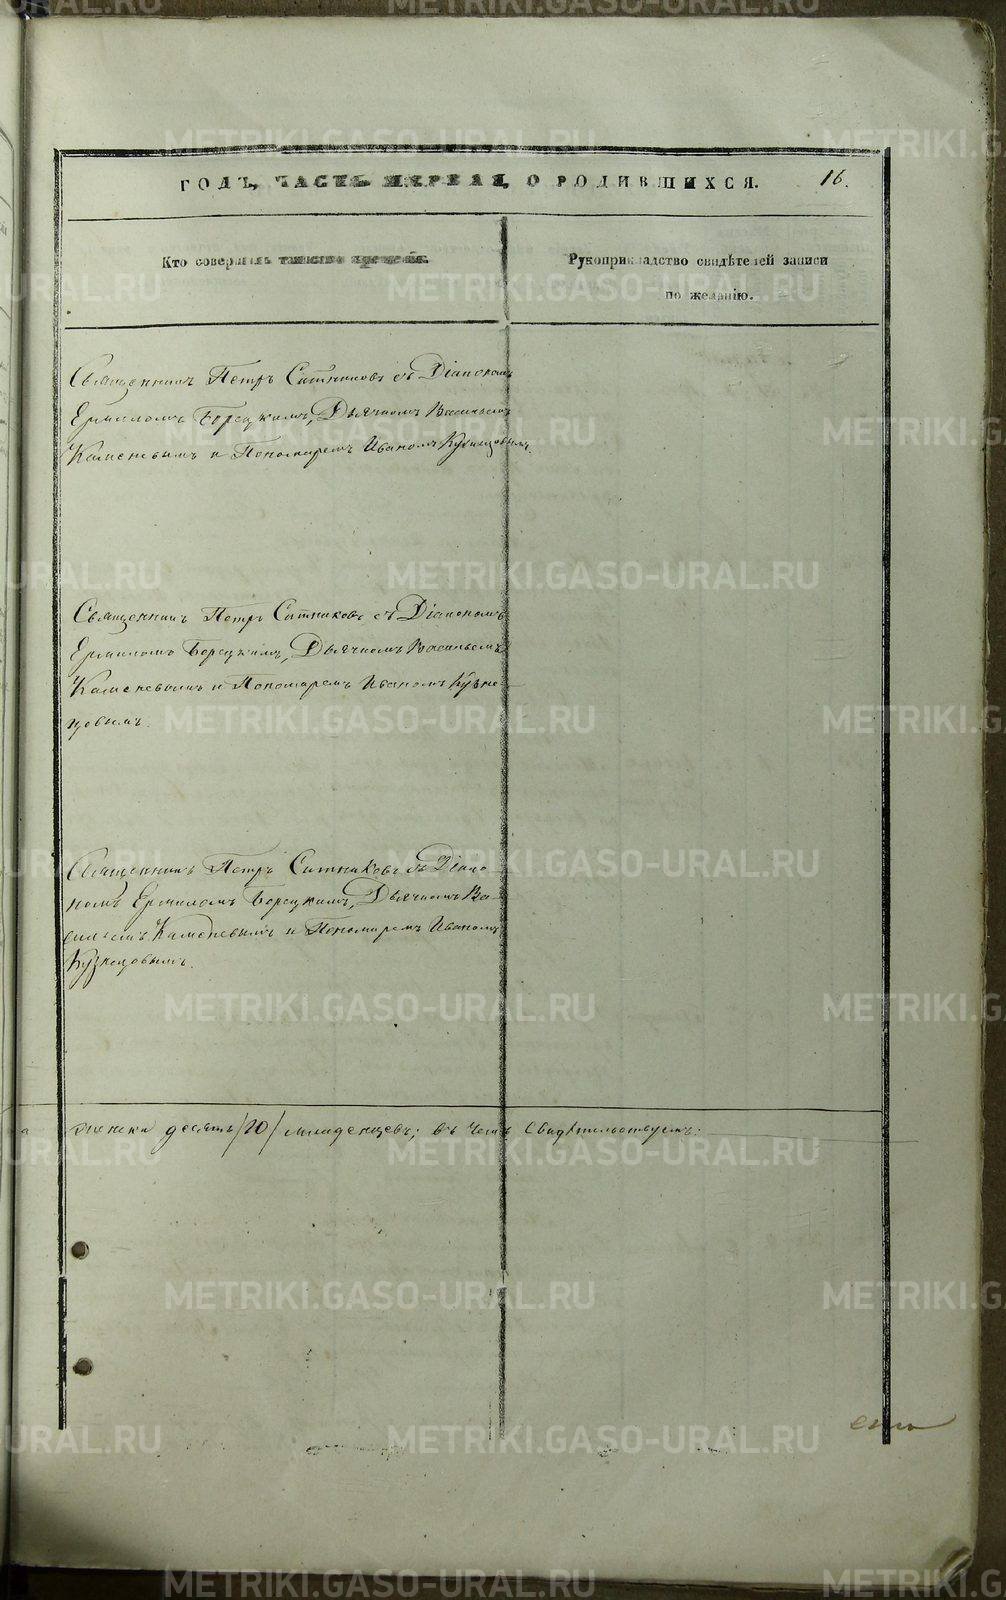 ГОДЪ, ЧАСТЬ ПЕРВАЯ, О РОДИВШИХСЯ. 16.
Кто совершалъ таинство крещенія.
Рукоприкладство свидѣтелей записи
по желанію.
Священникъ Петръ Ситниковъ съ Діакономъ
Ермиломъ Борецкимъ, Дьячкомъ Васильемъ
Каменевымъ и Пономаремъ Иваномъ Кузнецовымъ.
Священникъ Петръ Ситниковъ съ Діакономъ
Ермиломъ Борецкимъ, Дьячкомъ Васильемъ
Каменевымъ и Пономаремъ Иваномъ Кузне-
цовымъ.
Священникъ Петръ Ситниковъ съ Діако
номъ Ермиломъ Борецкимъ, Дьячкомъ Ва-
сильемъ Каменевымъ и Пономаремъ Иваномъ
Кузнецовымъ.
женска десять /10/ младенцевъ; въ чемъ свидѣтельствуемъ:
METRIKI.GASO-URAL.RU